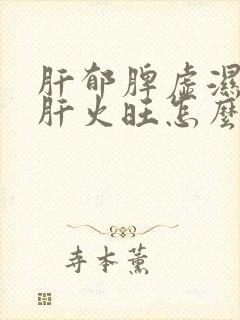 肝郁脾虚濕
肝火旺怎麼
寺本薰